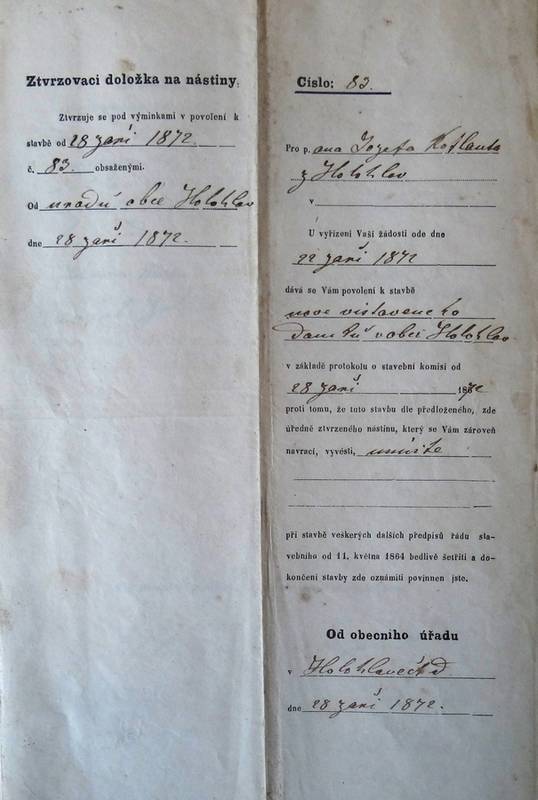 Ztvrzovaci doložka na nástiny.
Ztvrzuje se pod výminkami v povolení k
stavbě od 28 zaří 1872.
č. 83. obsaženými.
Od uradu obce Holohlav
dne 28 zaří 1872.
Číslo: 83.
Pro p. ana Jozefa
z Holohlav
v
U vyřízení Vaší žádosti ode dne
22 zaří 1872
dává se Vám povolení k stavbě
nove vistaveneho
domku v obci Holohlav
v základě protokolu o stavební komisi od
28 zaří 1872
proti tomu, že tuto stavbu dle předloženého, zde
úředně ztvrzeného nástinu, který se Vám zároveň
navrací, vyvésti,
při stavbě veškerých dalších předpisů řádu sta-
vebního od 11. května 1864 bedlivě šetřiti a do-
končení stavby zde oznámiti povinnen jste.
Od obecního úřadu
v
dne 28 zaří 1872.